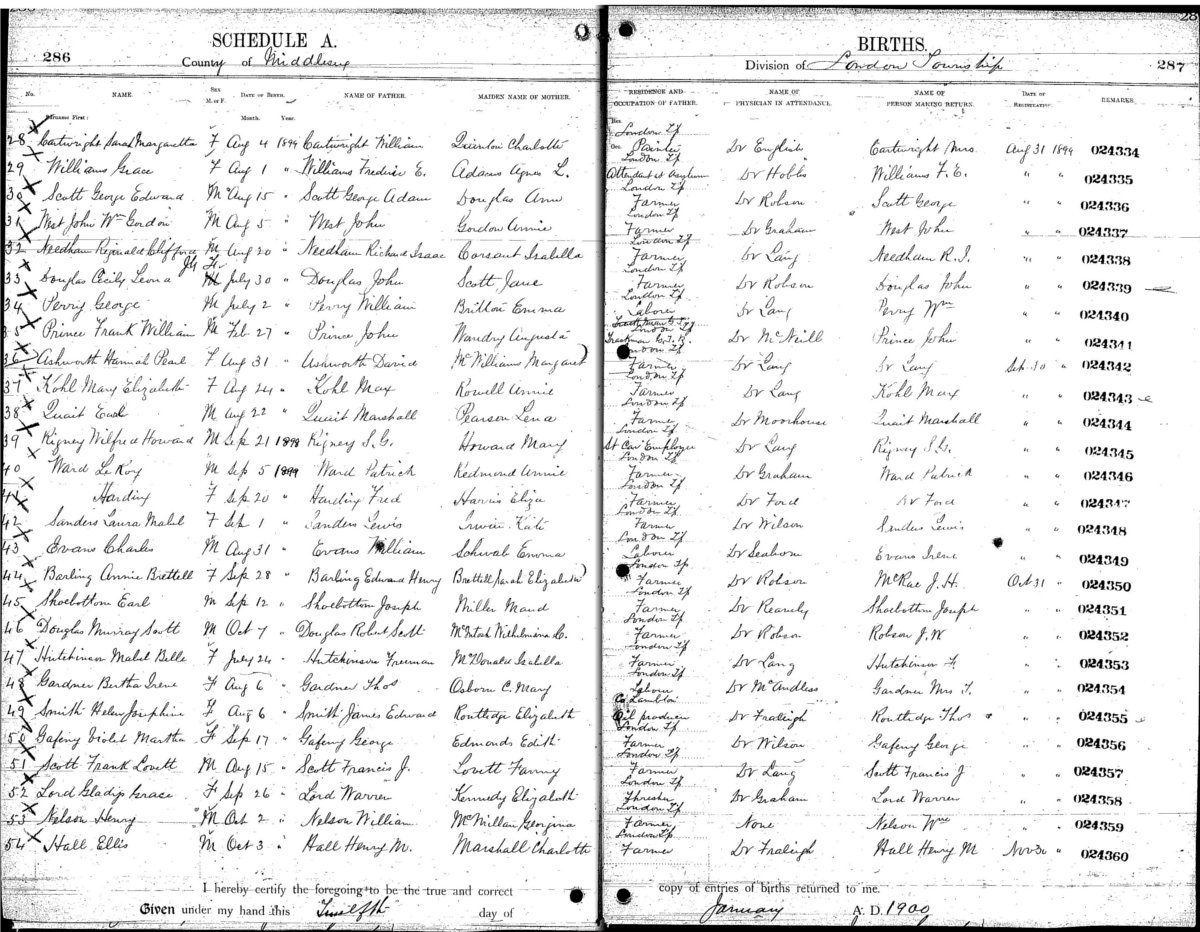 286 SCHEDULE A. BIRTHS. 287
County of Middlesex Division of London Township
No. NAME. SEX M. or F. DATE OF BIRTH. NAME OF FATHER. MAIDEN NAME OF MOTHER. RESIDENCE AND OCCUPATION OF FATHER. NAME OF PHYSICIAN IN ATTENDANCE. NAME OF PERSON MAKING RETURN. DATE OF REGISTRATION. REMARKS.
Surname First: Month. Year.
28 Cartwright Sarah Margaretta F Aug 4 1899 Cartwright William Quinton Charlotte Res. London Tp Occ. Painter Dr English Cartwright Mrs. Aug 31 1899 024334
29 Williams Grace F Aug 1 " Williams Frederic E. Adams Agnes L. London Tp Attendant at Asylum Dr Hobbs Williams F. E. " " 024335
30 Scott George Edward M Aug 15 " Scott George Adam Douglas Ann London Tp Farmer Dr Robson Scott George " " 024336
31 West John Wm Gordon M Aug 5 " West John Gordon Annie London Tp Farmer Dr Graham West John " " 024337
32 Needham Reginald Clifford M Aug 20 " Needham Richard Isaac Corsant Isabella London Tp Farmer Dr Lang Needham R. I. " " 024338
33 Douglas Cecily Leona F July 30 " Douglas John Scott Jane London Tp Farmer Dr Robson Douglas John " " 024339
34 Perry George M July 2 " Perry William Britton Emma London Tp Laborer Dr Lang Perry Wm " " 024340
35 Prince Frank William M Feb 27 " Prince John Wandry Augusta London Tp Trackman G. T. R. Dr McNeill Prince John " " 024341
36 Ashworth Hannah Pearl F Aug 31 " Ashworth David McWilliams Margaret London Tp Farmer Dr Lang Dr Lang Sep 30 " 024342
37 Kohl Mary Elizabeth F Aug 24 " Kohl Max Rowell Annie London Tp Farmer Dr Lang Kohl Max " " 024343
38 Quait Earl M Aug 22 " Quait Marshall Pearson Lena London Tp Farmer Dr Moorhouse Quait Marshall " " 024344
39 Rigney Wilfred Howard M Sep 21 1899 Rigney S. G. Howard Mary St Car Employee Dr Lang Rigney S. G. " " 024345
40 Ward LeRoy M Sep 5 1899 Ward Patrick Redmond Annie London Tp Farmer Dr Graham Ward Patrick " " 024346
41 Harding F Sep 20 " Harding Fred Harris Eliza London Tp Farmer Dr Ford Dr Ford " " 024347
42 Sanders Laura Mabel F Sep 1 " Sanders Lewis Irwin Kate London Tp Farmer Dr Wilson Sanders Lewis " " 024348
43 Evans Charles M Aug 31 " Evans William Schwab Emma London Tp Laborer Dr Seaborn Evans Irene " " 024349
44 Barling Annie Brettell F Sep 28 " Barling Edward Henry Brettell Sarah Elizabeth London Tp Farmer Dr Robson McRae J. H. Oct 31 " 024350
45 Shoebottom Earl M Sep 12 " Shoebottom Joseph Miller Maud London Tp Farmer Dr Shoebottom Joseph " " 024351
46 Douglas Murray Scott M Oct 7 " Douglas Robert Scott McIntosh Wilhelmina London Tp Farmer Dr Robson Robson J. W " " 024352
47 Hutchinson Mabel Belle F July 24 " Hutchinson Freeman McDonald Isabella London Tp Farmer Dr Lang Hutchinson F. " " 024353
48 Gardner Bertha Irene F Aug 6 " Gardner Thos Osborn C. Mary London Tp Labour Dr McCandless Gardner Mrs T. " " 024354
49 Smith Helen Josephine F Aug 6 " Smith James Edward Routledge Elizabeth Co Lambton Oil producer Dr Fraleigh Routledge Thos " " 024355
50 Gafeny Violet Martha F Sep 17 " Gafeny George Edmonds Edith London Tp Farmer Dr Wilson Gafeny George " " 024356
51 Scott Frank Lovett M Aug 15 " Scott Francis J. Lovett Fanny London Tp Farmer Dr Lang Scott Francis J " " 024357
52 Lord Gladys Grace F Sep 26 " Lord Warren Kennedy Elizabeth London Tp Thresher Dr Graham Lord Warren " " 024358
53 Nelson Henry M Oct 2 " Nelson William McMillan Georgina London Tp Farmer None Nelson Wm " " 024359
54 Hall Ellis M Oct 3 " Hall Henry M. Marshall Charlotte London Tp Farmer Dr Fraleigh Hall Henry M Nov 30 " 024360
I hereby certify the foregoing to be the true and correct copy of entries of births returned to me.
Given under my hand this Twelfth day of January A. D. 1900